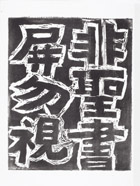 非聖書
屏勿視